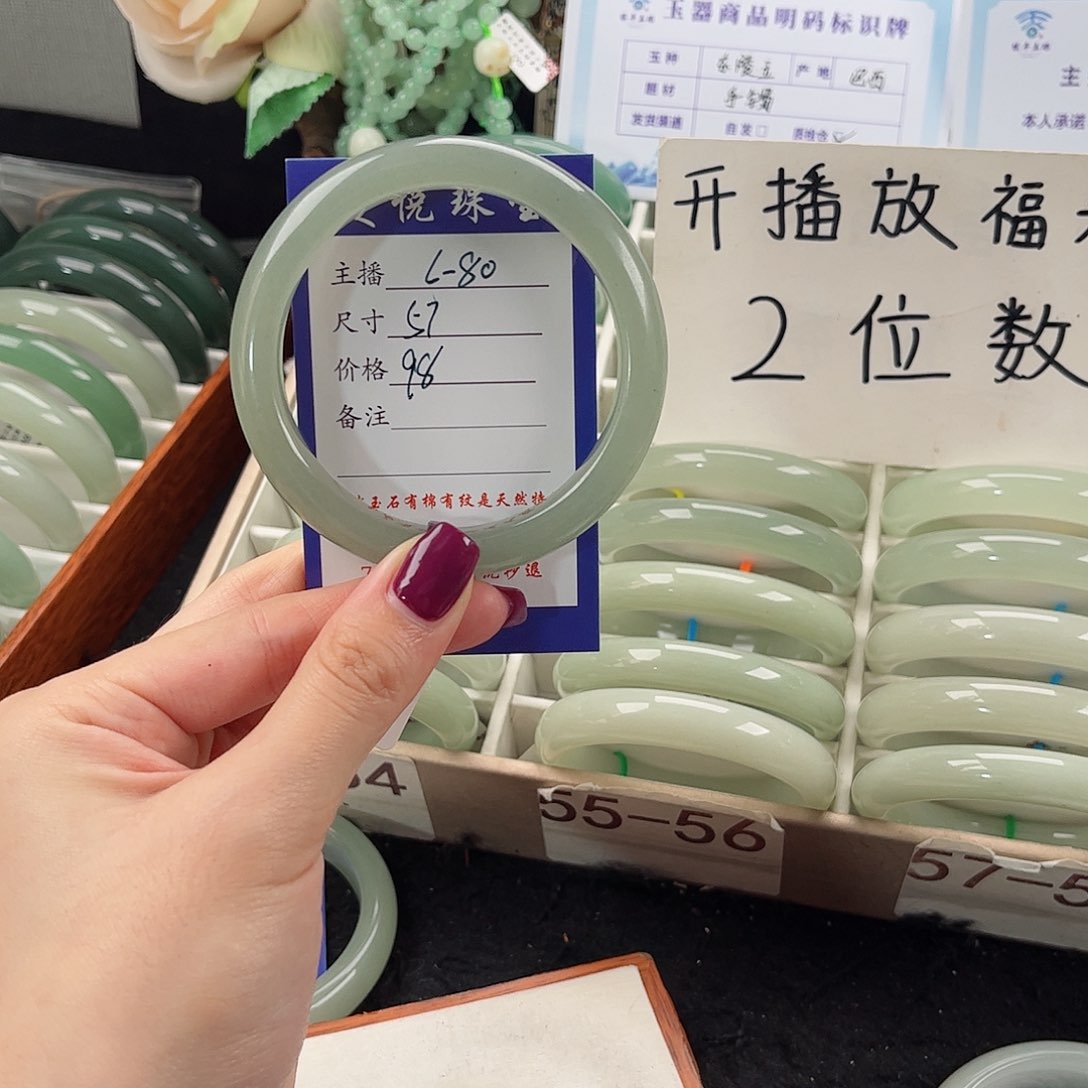 玉器商品明码标识牌
玉种 东陵玉 产地 巴西
题材 手镯
发货渠道 自发□
主
本人承诺
开播放福
2位数
悦珠宝
主播 L-80
尺寸 57
价格 98
备注
玉石有棉有纹是天然特
抄退
54
55-56
57-5